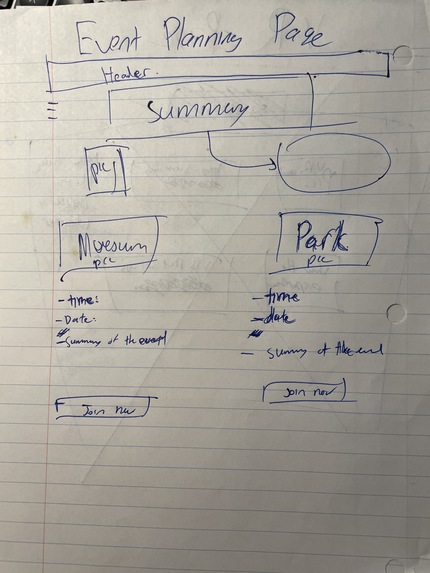 Event Planning Page
Header.
Summary
pic
Museum
pic
Park
pic
- time:
- Date:
- Summary of the event
- time
- date
- summary of the
Join now
Join now